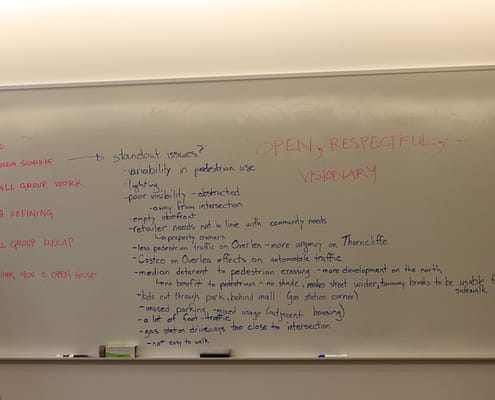 OPEN, RESPECTFUL,
VISIONARY
SCORING
GROUP WORK
REFINING
GROUP RECAP
& OPEN HOUSE
standout issues?
- variability in pedestrian use
- lighting
- poor visibility - obstructed
- away from intersection
- empty storefront
- retailer needs not in line with community needs
property owners
- less pedestrian traffic on Overlea - more urgency on Thorncliffe
- Costco on Overlea effects on automobile traffic
- median deterent to pedestrian crossing - more development on the north
no benefit to pedestrians - no shade, makes street wider, too many breaks to be usable
sidewalk
- kids cut through park, behind mall (gas station corner)
- unused parking - mixed usage (adjacent housing)
- a lot of foot-traffic
- gas station driveways too close to intersection
- not easy to walk